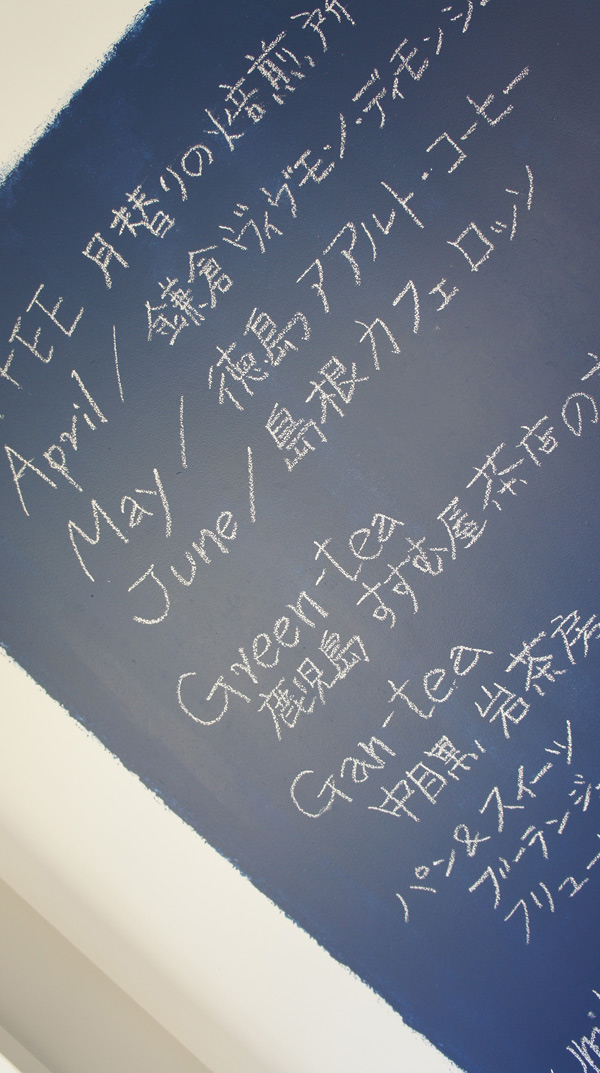 月替りの焙煎所
April / 鎌倉 ヴィヴモン・ディモンシ
May / 徳島 アアルト・コーヒー
June / 島根 カフェ ロッソ
Green-tea
鹿児島 すすむ屋茶店の
Gan-tea
中目黒 岩茶房
パン&スイーツ
ブーテンジ
フリュー